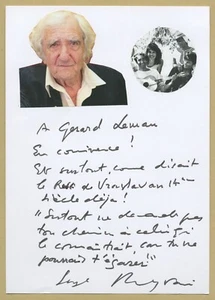 A Gerard Leman
En connivence !
Et surtout, comme disait
le Rebbe de Vratslav au 18ème
siècle déjà !
"Surtout ne demande pas
ton chemin à celui qui
le connaîtrait, car tu ne
pourrais t'égarer !"